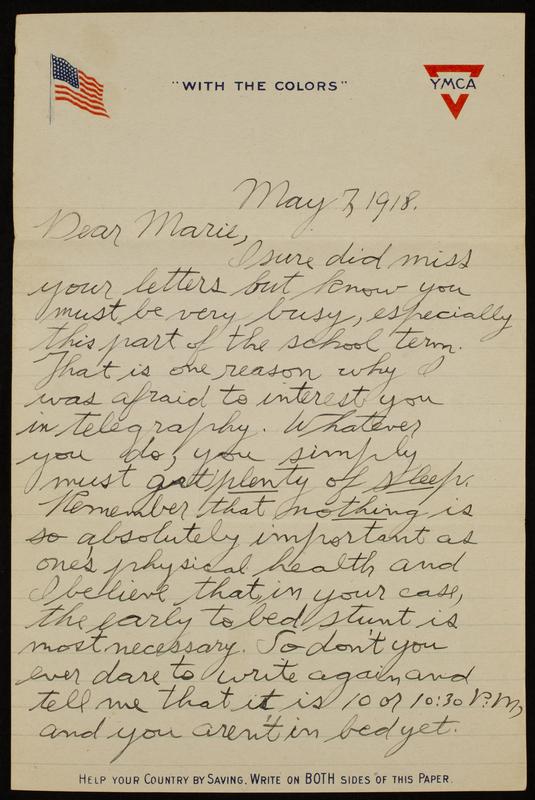 "WITH THE COLORS"
YMCA
May 7, 1918.
Dear Marie,
I sure did miss
your letters but know you
must be very busy, especially
this part of the school term.
That is one reason why I
was afraid to interest you
in telegraphy. Whatever
you do, you simply
must get plenty of sleep.
Remember that nothing is
so absolutely important as
one's physical health and
I believe that in your case,
the early to bed stunt is
most necessary. So don't you
ever dare to write again and
tell me that it is 10 or 10:30 P.M,
and you aren't in bed yet.
HELP YOUR COUNTRY BY SAVING. WRITE ON BOTH SIDES OF THIS PAPER.